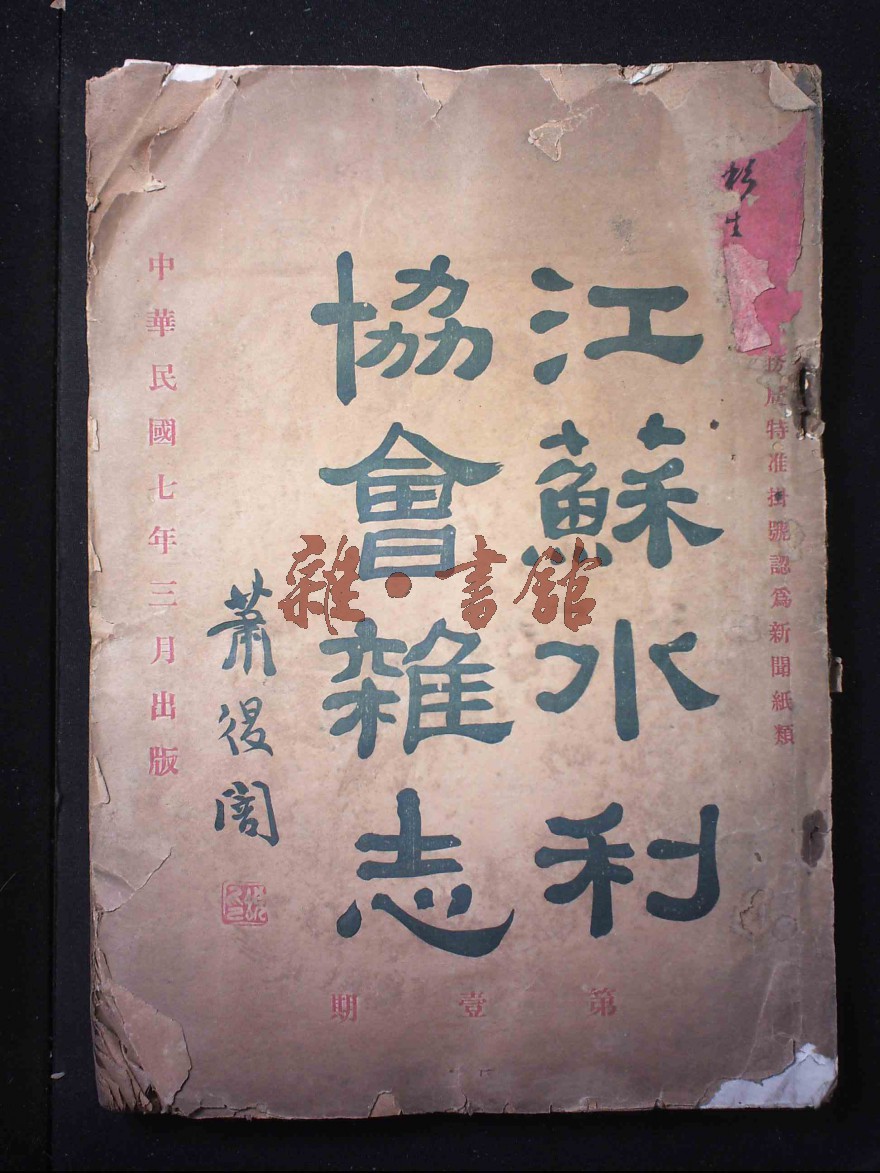 特准掛號認爲新聞紙類
江蘇水利
協會雜志
蕭俊闇
中華民國七年三月出版
第壹期
雜·書館